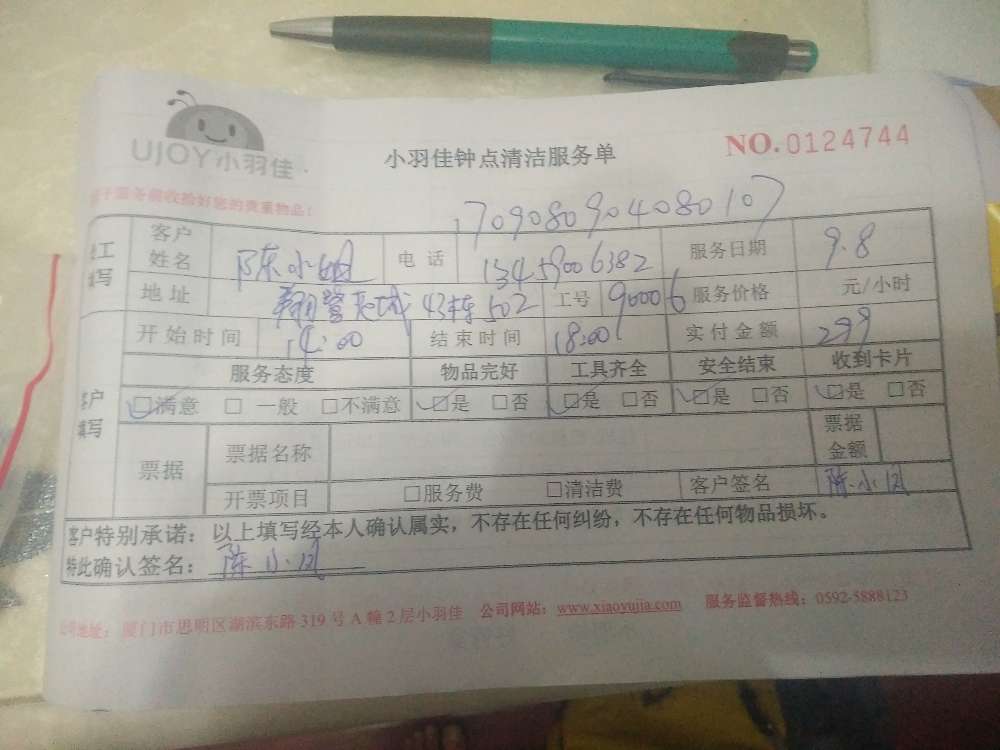 UJOY小羽佳
小羽佳钟点清洁服务单
NO.0124744
服务前收拾好您的贵重物品!
1709080904080107
员工填写 客户姓名 陈小姐 电话 13459006382 服务日期 9.8
地址 43栋502 工号 90006 服务价格 元/小时
开始时间 14:00 结束时间 18:00 实付金额 299
客户填写 服务态度 物品完好 工具齐全 安全结束 收到卡片
☑满意 □一般 □不满意 ☑是 □否 ☑是 □否 ☑是 □否 ☑是 □否
票据 票据名称 票据金额
开票项目 □服务费 □清洁费 客户签名 陈小
客户特别承诺:以上填写经本人确认属实,不存在任何纠纷,不存在任何物品损坏。
特此确认签名: 陈小
公司地址:厦门市思明区湖滨东路319号A幢2层小羽佳 公司网站:www.xiaoyujia.com 服务监督热线:0592-5888123